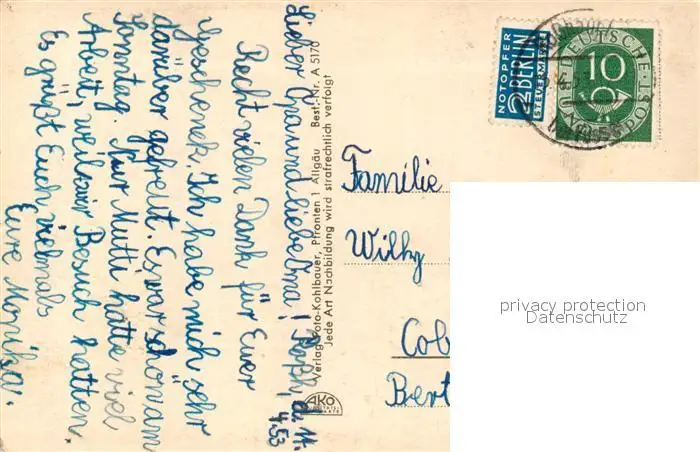 Lieber Opa und liebe Oma! d. 11.
4.53
Recht vielen Dank für Euer
Geschenek. Ich habe mich sehr
darüber gefreut. Es war schon am
Sonntag. Nur Mutti hatte viel
Arbeit, weil wir Besuch hatten.
Es grüßt Euch vielmals
Eure Monika.
Verlag Foto-Kohlbauer, Pfronten 1 Allgäu Best.-Nr. A 5170
Jede Art Nachbildung wird strafrechtlich verfolgt
AKO
NOTOPFER
2 BERLIN
STEUERMARKE
DEUTSCHE POST
10
Familie
Willy
Cob
Bert
privacy protection
Datenschutz